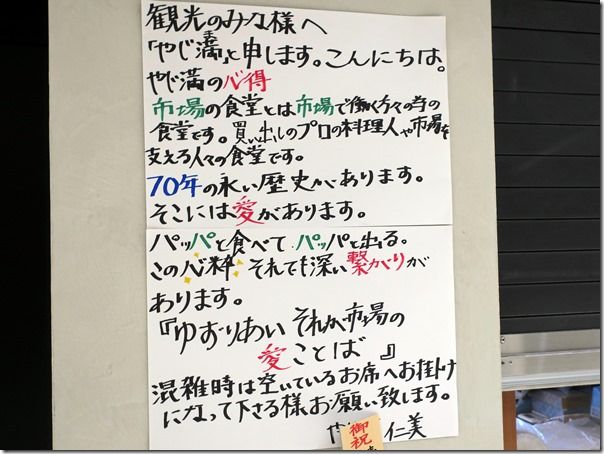 観光のみな様へ
「やじ満」と申します。こんにちは。
やじ満の心得
市場の食堂とは市場で働く方々の為の
食堂です。買い出しのプロの料理人や市場を
支える人々の食堂です。
70年の永い歴史があります。
そこには愛があります。
パッパと食べて パッパと出る。
この心粋 それでも深い繋がりが
あります。
『ゆずりあい それが市場の
愛ことば 』
混雑時は空いているお席へお掛け
になって下さる様お願い致します。
仁美
御祝